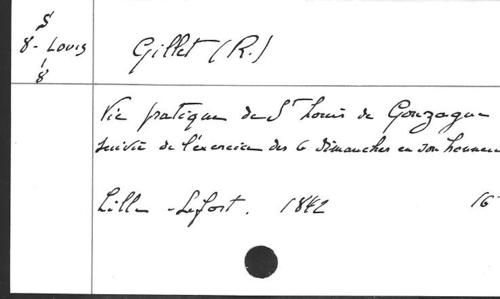 S
8 - Louis
8
Gillet (R.)
Vie pratique de St Louis de Gonzague
suivie de l'exercice des 6 dimanches en son honneur
Lille - Lefort. 1842 16°